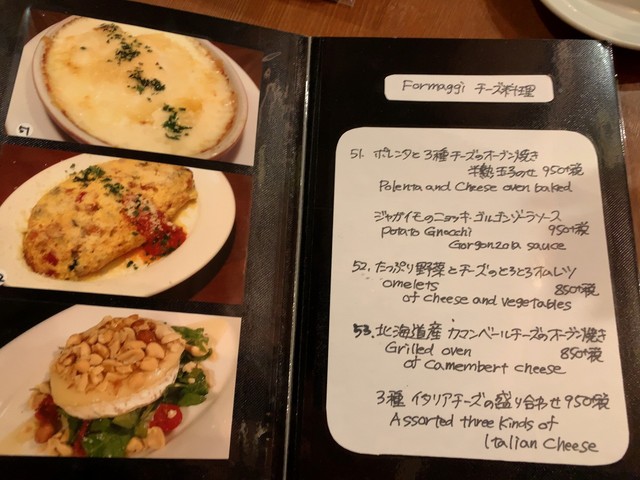 51
2
Formaggi チーズ料理
51. ポレンタと3種チーズのオーブン焼き
半熟玉子のせ 950+税
Polenta and Cheese oven baked
ジャガイモのニョッキ・ゴルゴンゾーラソース
Potato Gnocchi 950+税
Gorgonzola sauce
52. たっぷり野菜とチーズのとろとろオムレツ
omelets 850+税
of cheese and vegetables
53. 北海道産 カマンベールチーズのオーブン焼き
Grilled oven 850+税
of Camembert cheese
3種 イタリアチーズの盛り合わせ 950+税
Assorted three kinds of
Italian Cheese